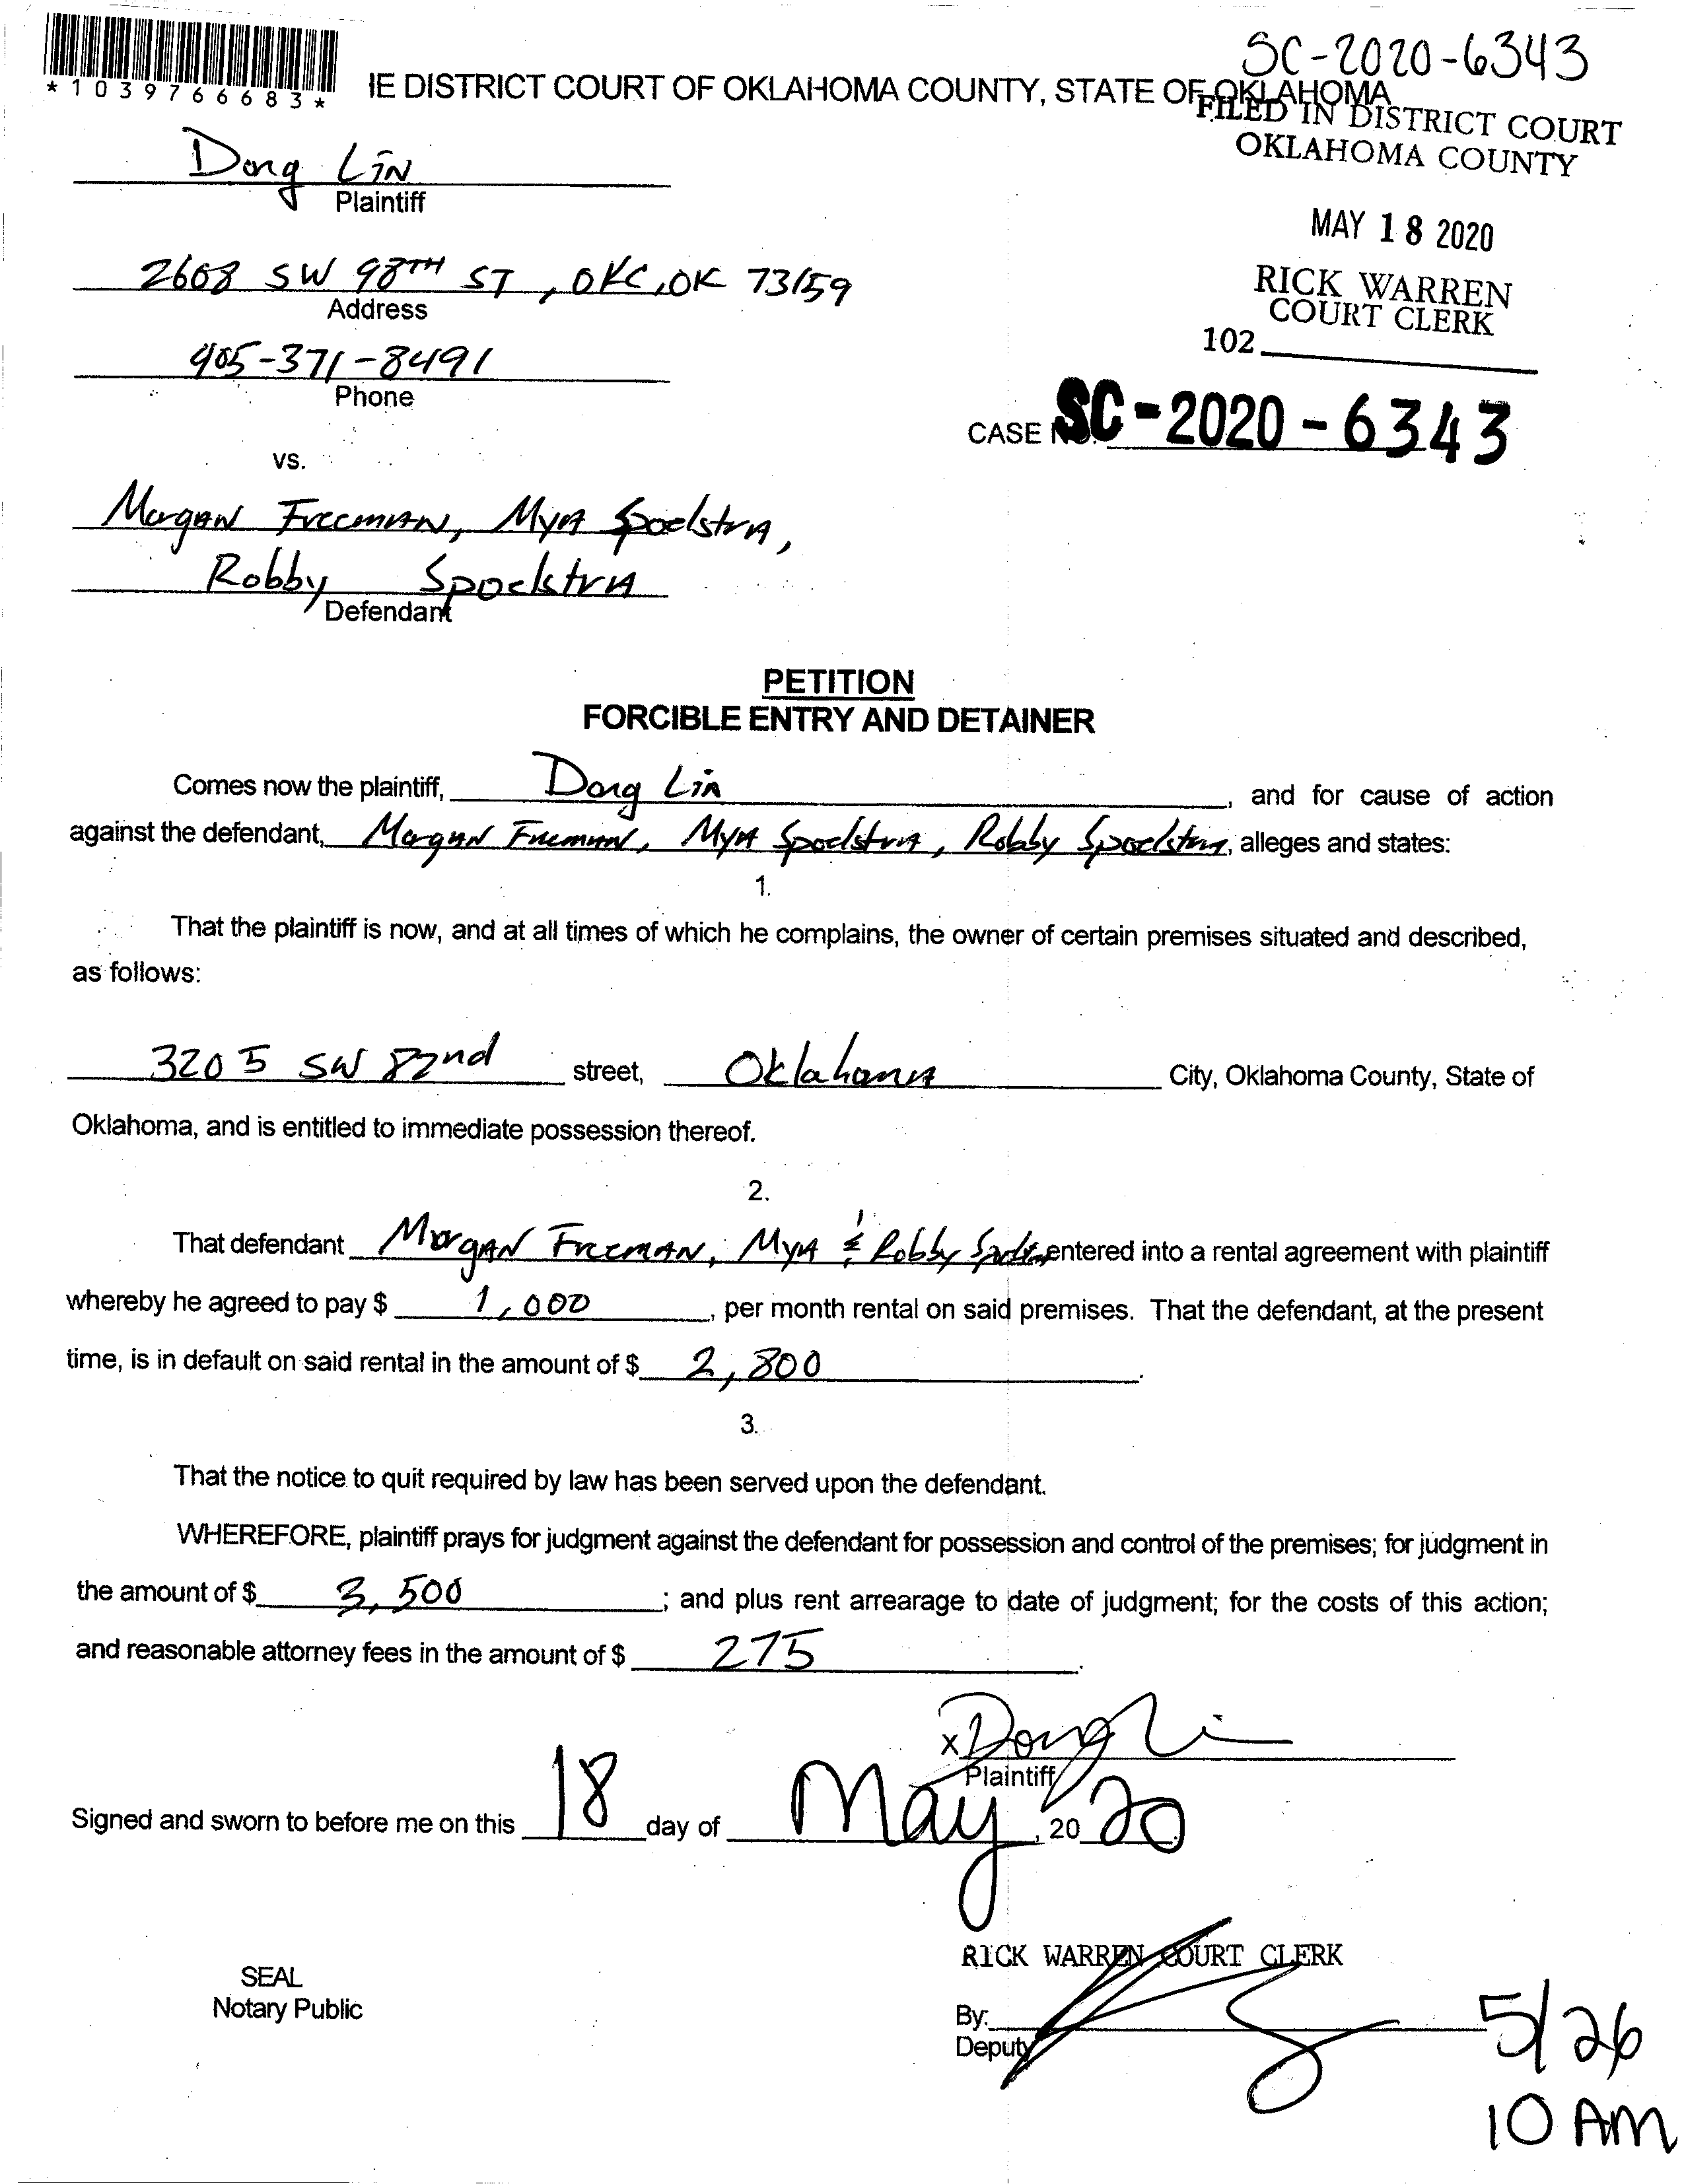 SC-2020-6343
*1039766683*
IE DISTRICT COURT OF OKLAHOMA COUNTY, STATE OF OKLAHOMA
FILED IN DISTRICT COURT
OKLAHOMA COUNTY
Dong Lin
Plaintiff
MAY 18 2020
2608 SW 98TH ST, OKC, OK 73159
Address
RICK WARREN
COURT CLERK
102
405-371-8491
Phone
CASE NO. SC-2020-6343
vs.
Morgan Freeman, Mya Spoelstra,
Robby Spoelstra
Defendant
PETITION
FORCIBLE ENTRY AND DETAINER
Comes now the plaintiff, Dong Lin, and for cause of action
against the defendant, Morgan Freeman, Mya Spoelstra, Robby Spoelstra, alleges and states:
1.
That the plaintiff is now, and at all times of which he complains, the owner of certain premises situated and described,
as follows:
3205 SW 82nd street, Oklahoma City, Oklahoma County, State of
Oklahoma, and is entitled to immediate possession thereof.
2.
That defendant Morgan Freeman, Mya & Robby entered into a rental agreement with plaintiff
whereby he agreed to pay $ 1,000, per month rental on said premises. That the defendant, at the present
time, is in default on said rental in the amount of $ 2,800.
3.
That the notice to quit required by law has been served upon the defendant.
WHEREFORE, plaintiff prays for judgment against the defendant for possession and control of the premises; for judgment in
the amount of $ 3,500; and plus rent arrearage to date of judgment; for the costs of this action;
and reasonable attorney fees in the amount of $ 275.
x Dong Li
Plaintiff
Signed and sworn to before me on this 18 day of May, 20 20
RICK WARREN COURT CLERK
SEAL
Notary Public
By:
Deputy
5/26
10 AM